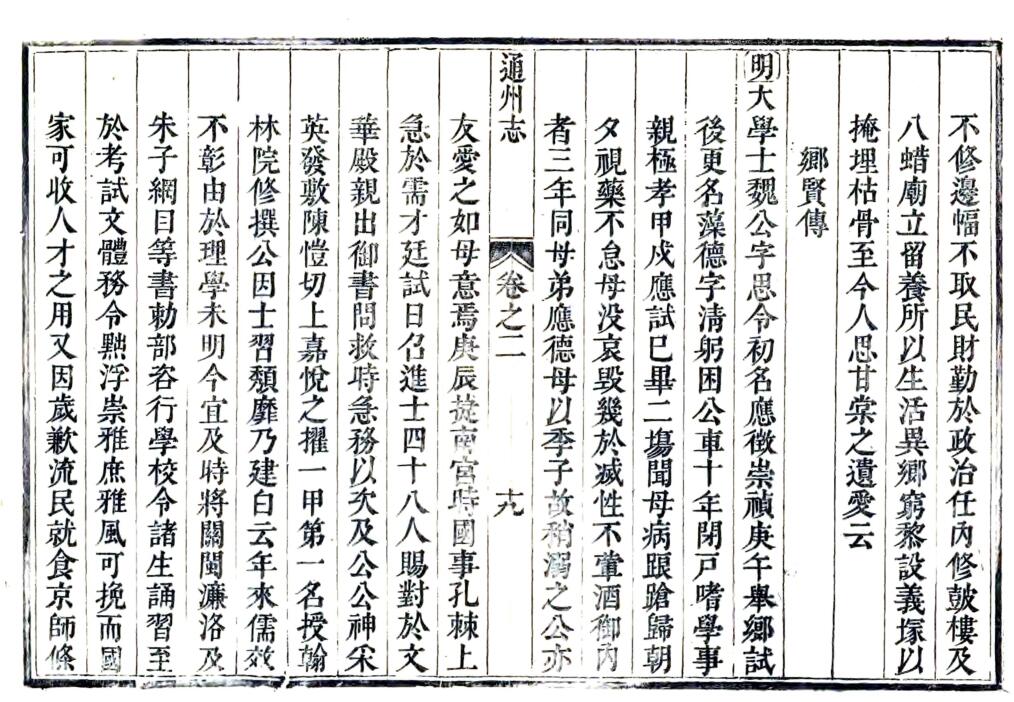 不修邊幅不取民財勤於政治任內修鼓樓及
八蜡廟立留養所以生活異鄉窮黎設義塚以
掩埋枯骨至今人思甘棠之遺愛云
鄉賢傳
明大學士魏公字思令初名應徵崇禎庚午舉鄉試
後更名藻德字清躬困公車十年閉戸嗜學事
親極孝甲戍應試巳畢二塲聞母病踉蹌歸朝
夕視藥不怠母没哀毀幾於滅性不葷酒御内
者三年同母弟應德母以季子故稍溺之公亦
通州志 卷之二 十九
友愛之如母意焉庚辰㨗南宮時國事孔棘上
急於需才廷試日召進士四十八人賜對於文
華殿親出御書問救時急務以次及公公神采
英發敷陳愷切上嘉悅之擢一甲第一名授翰
林院修撰公因士習頽靡乃建白云年來儒效
不彰由於理學未明今宜及時將關閩濂洛及
朱子綱目等書勅部咨行學校令諸生誦習至
於考試文體務令黜浮崇雅庶雅風可挽而國
家可收人才之用又因歲歉流民就食京師條